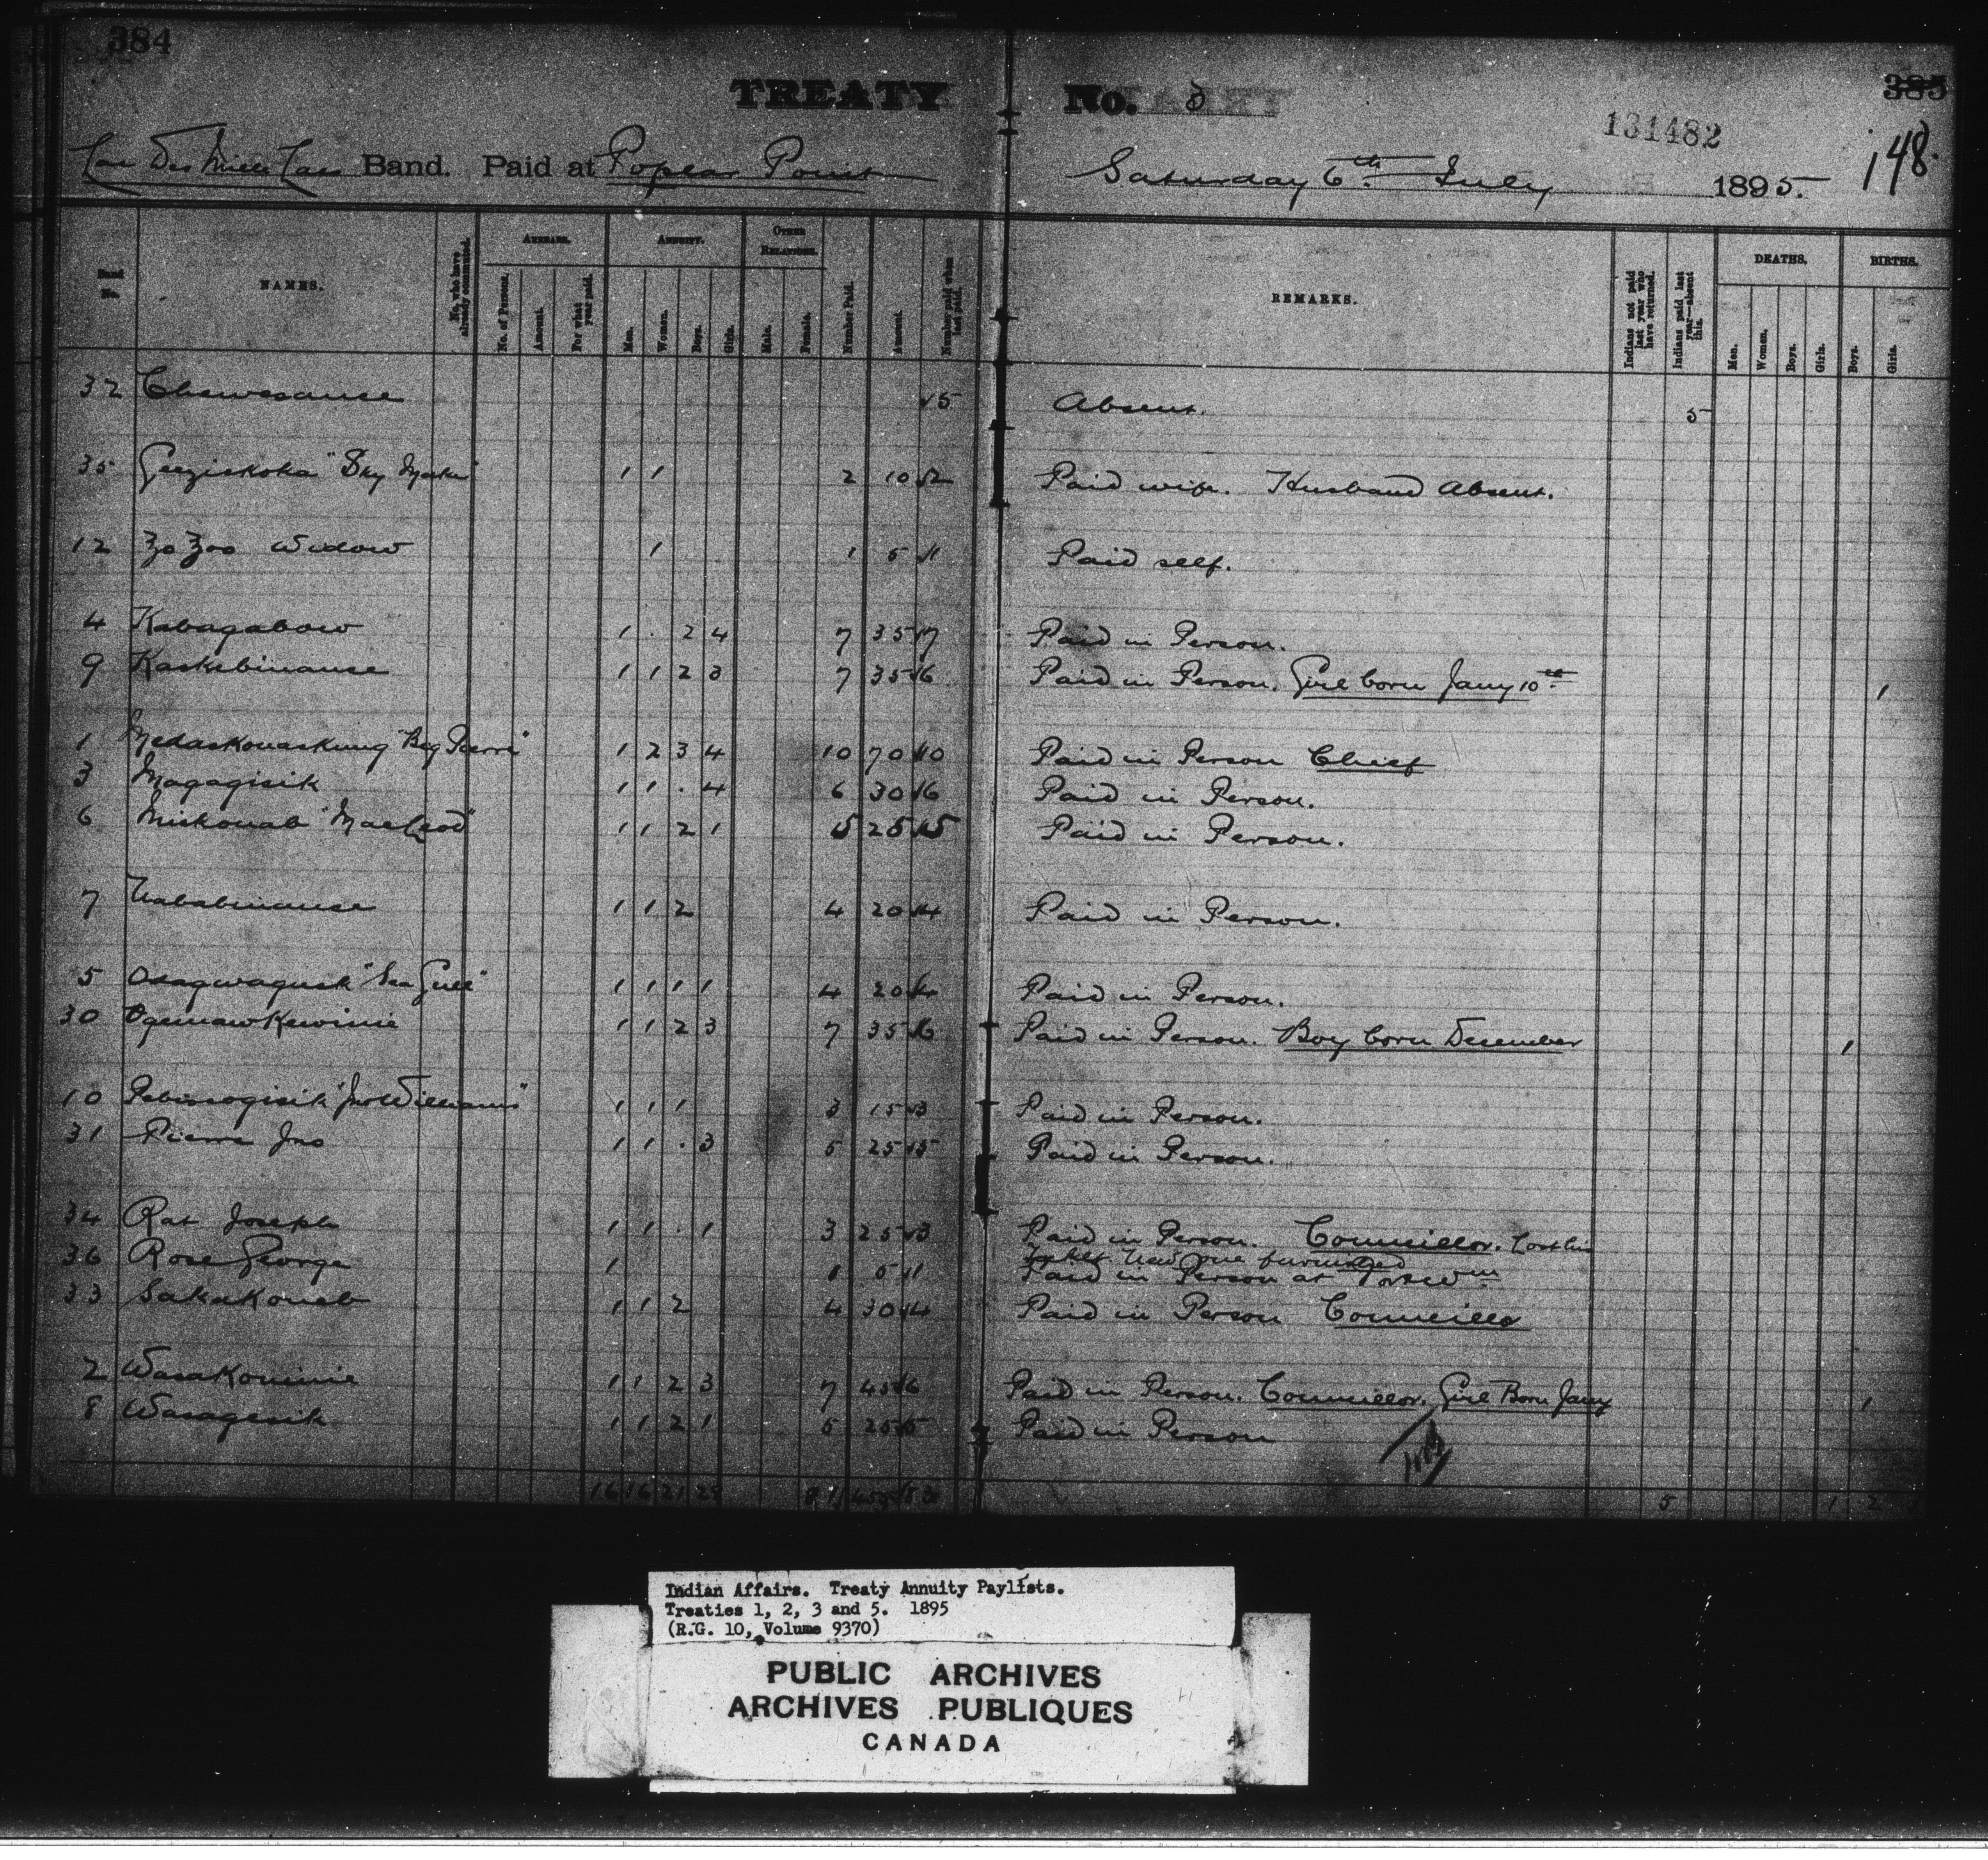 384
TREATY No. 3
385
131482
148.
Lac Des Mille Lacs Band. Paid at Poplar Point Saturday 6th July 1895.
Band No. NAMES. No. who have already commuted. ARREARS. No. of Persons. Amount. For what year paid. ANNUITY. Men. Women. Boys. Girls. OTHER RELATIONS. Male. Female. Number Paid. Amount. Number paid when last paid. REMARKS. Indians not paid last year who have returned. Indians paid last year—absent this. DEATHS. Men. Women. Boys. Girls. BIRTHS. Boys. Girls.
32 Chewesause √5 Absent. 5
35 Geeziskoka "Sky Maker" 1 1 2 10 √2 Paid wife. Husband Absent.
12 Zo Zoo Widow 1 1 5 √1 Paid self.
4 Kabagabow 1 . 2 4 7 35 √7 Paid in Person.
9 Kaskebinause 1 1 2 3 7 35 √6 Paid in Person. Girl born Jany 10th 1
1 Medaskonaskung "Big Pierre" 1 2 3 4 10 70 √10 Paid in Person Chief
3 Magagisik 1 1 . 4 6 30 √6 Paid in Person.
6 Miskouab "MacLeod" 1 1 2 1 5 25 √5 Paid in Person.
7 Nababinause 1 1 2 4 20 √4 Paid in Person.
5 Osagwagusk "Sea Gull" 1 1 1 1 4 20 √4 Paid in Person.
30 OgemawKewinie 1 1 2 3 7 35 √6 Paid in Person. Boy born December 1
10 "Jno Williams" 1 1 1 3 15 √3 Paid in Person.
31 Pierre Jno 1 1 . 3 5 25 √5 Paid in Person.
34 Rat Joseph 1 1 . 1 3 25 √3 Paid in Person. Councillor. Lost his
New one furnished
36 Rose George 1 1 5 √1 Paid in Person at
33 Sakakoueb 1 1 2 4 30 √4 Paid in Person Councillor
2 Wasakominie 1 1 2 3 7 45 √6 Paid in Person. Councillor. Girl Born Jany 1
8 Wasagesik 1 1 2 1 5 25 √5 Paid in Person
16 16 21 28 81 455 5 1 2
Indian Affairs. Treaty Annuity Paylists.
Treaties 1, 2, 3 and 5. 1895
(R.G. 10, Volume 9370)
PUBLIC ARCHIVES
ARCHIVES PUBLIQUES
CANADA